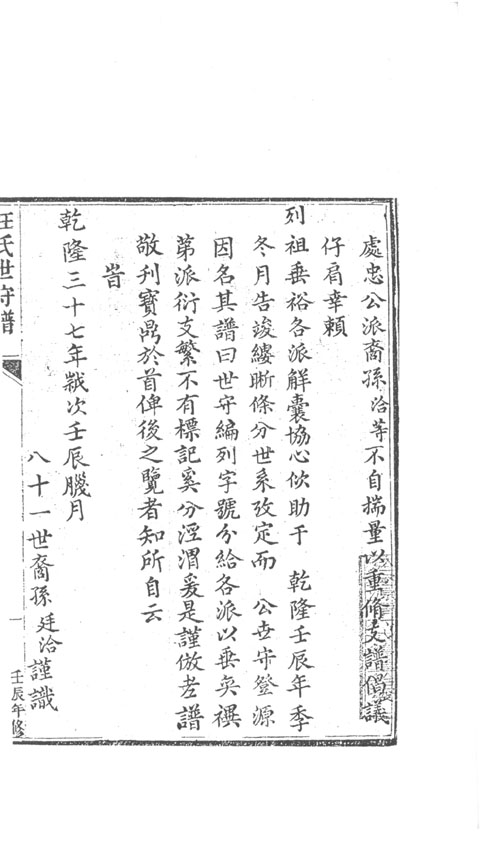 處忠公派裔孫洽等不自揣量以重脩支譜倡議
仔肩幸賴
列祖垂裕各派解囊協心佽助于 乾隆壬辰年季
冬月告竣縷晰條分世系攷定而 公世守登源
因名其譜曰世守編列字號分給各派以垂奕禩
第派衍支繁不有標記奚分涇渭爰是謹倣老譜
敬刋寶鼎於首俾後之覽者知所自云
旹
乾隆三十七年歳次壬辰臘月
八十一世裔孫廷洽謹識
汪氏世守譜
一
壬辰年修